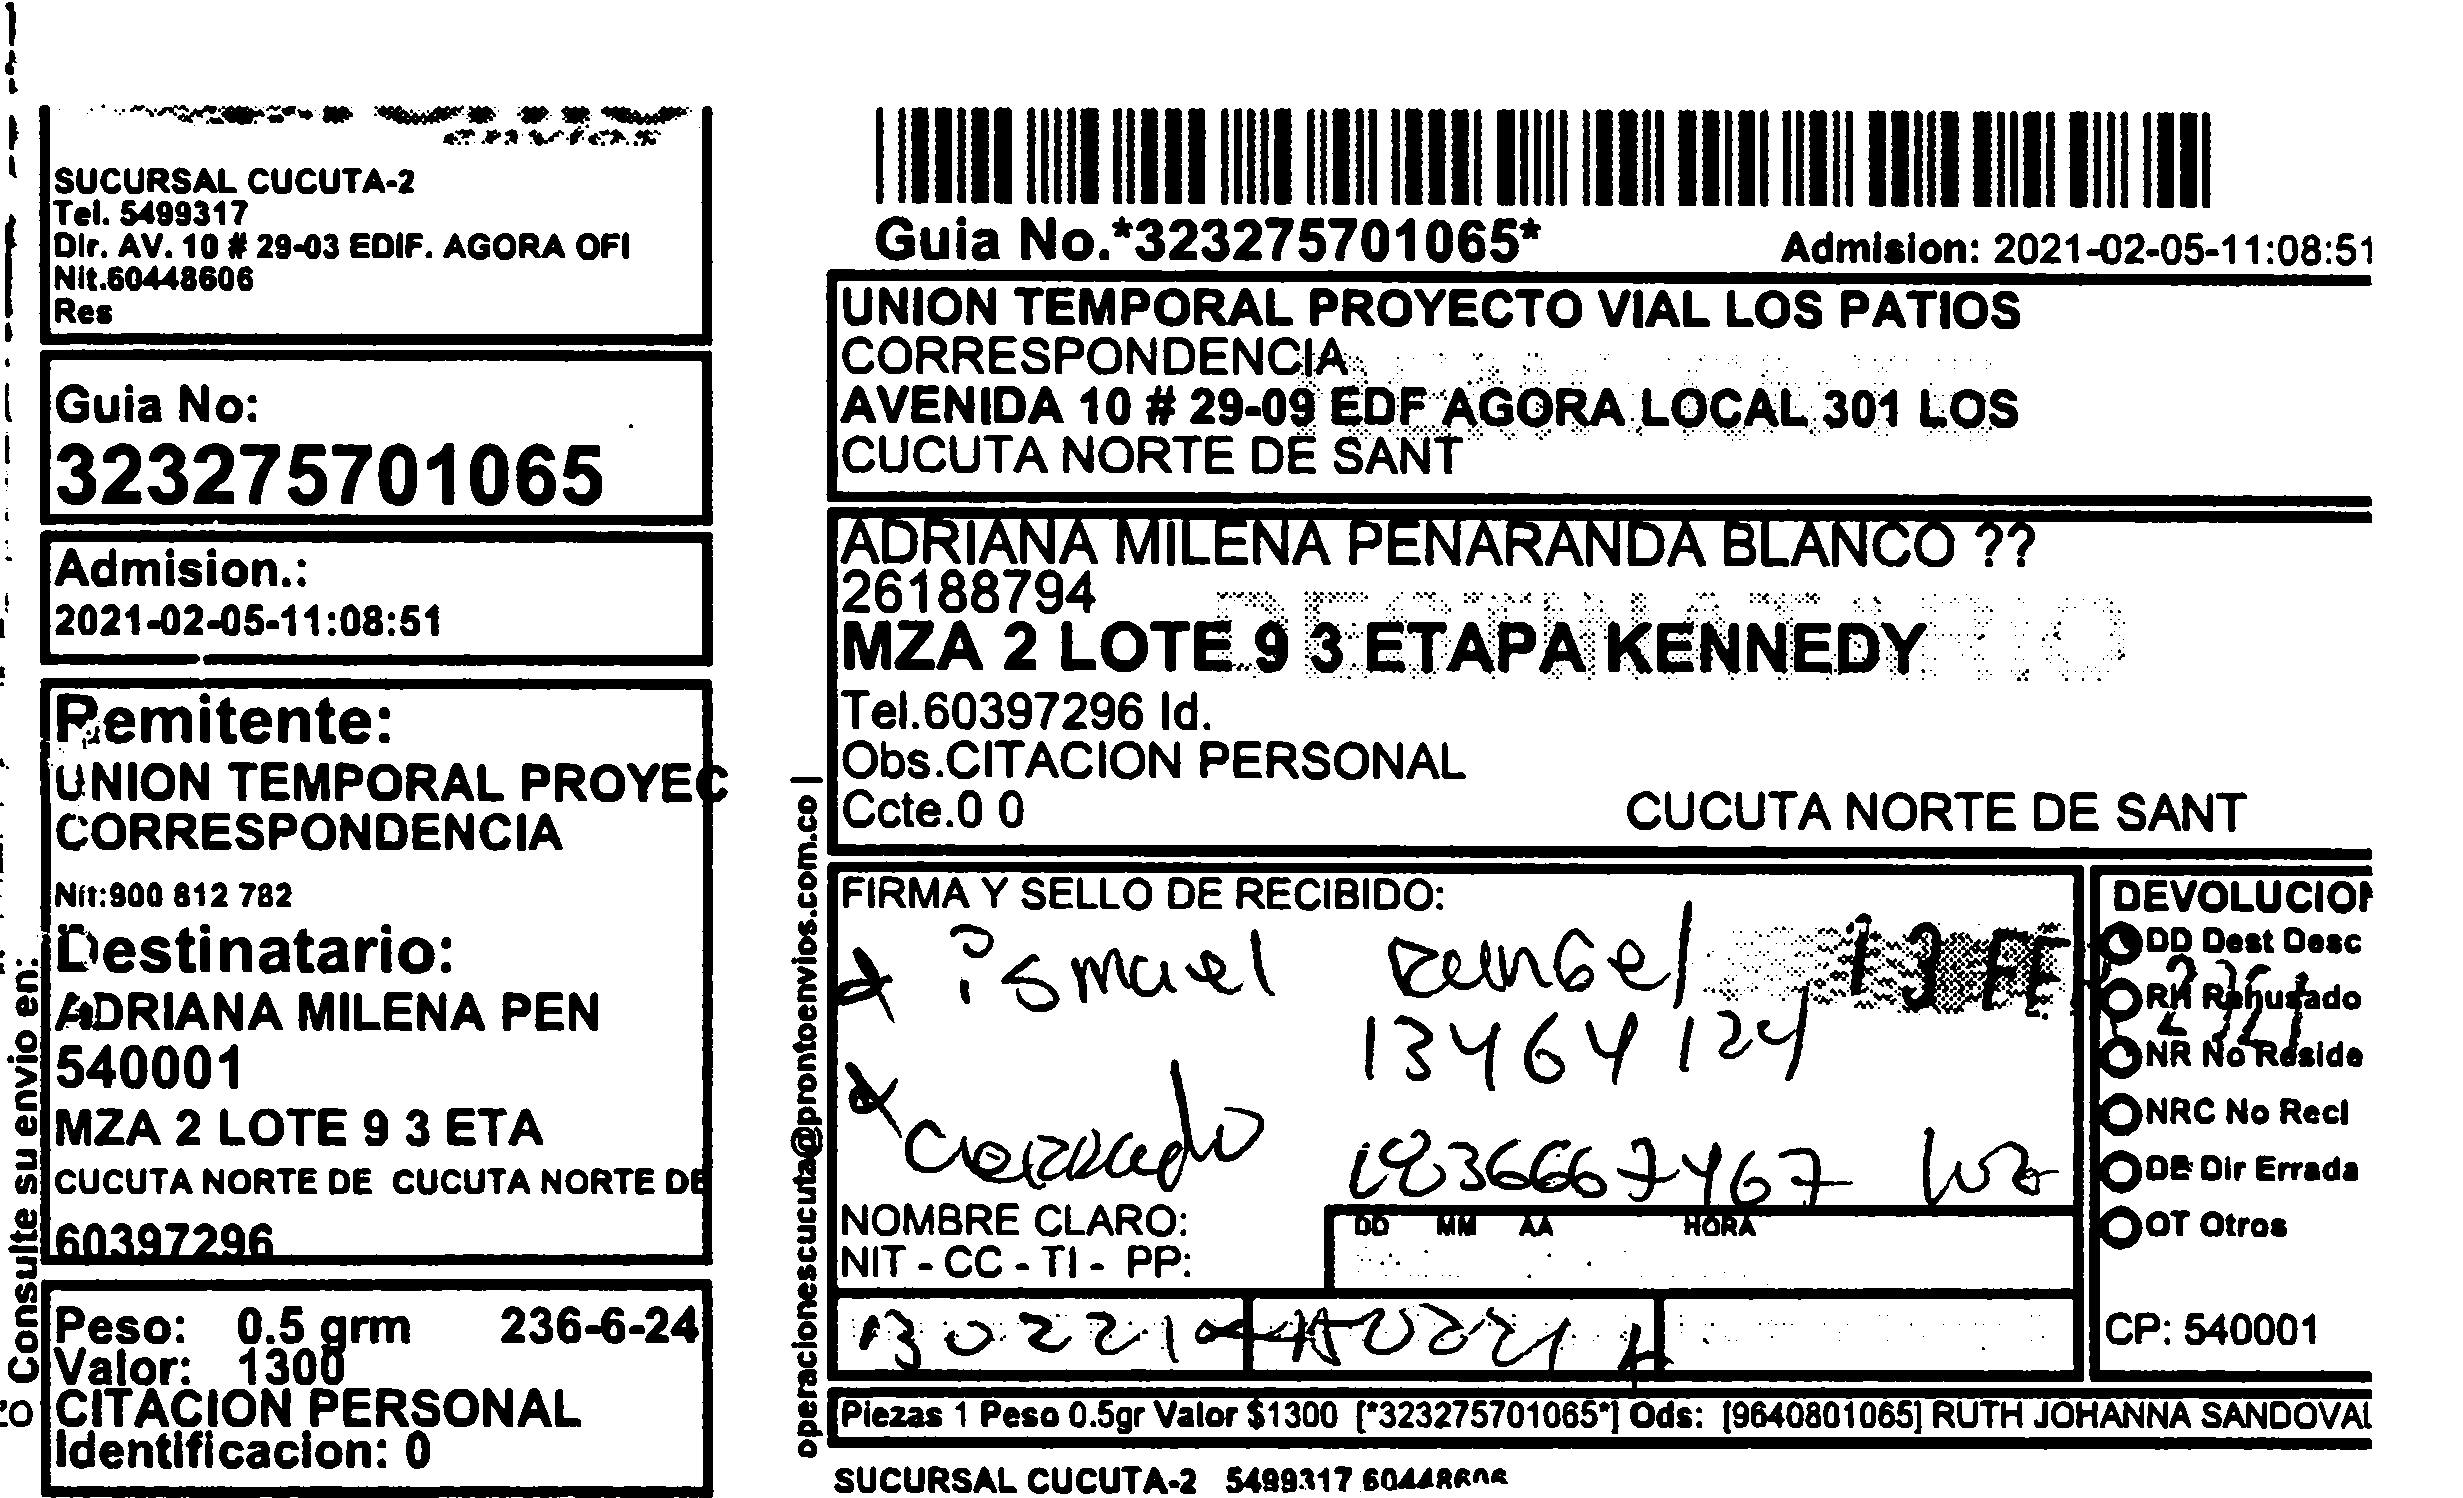 SUCURSAL CUCUTA-2
Tel. 5499317
Dir. AV. 10 # 29-03 EDIF. AGORA OFI
Nit.60448606
Res
Guia No:
323275701065
Admision.:
2021-02-05-11:08:51
Remitente:
UNION TEMPORAL PROYEC
CORRESPONDENCIA
Nit:900 812 782
Destinatario:
ADRIANA MILENA PEN
540001
MZA 2 LOTE 9 3 ETA
CUCUTA NORTE DE CUCUTA NORTE DE
60397296
Peso: 0.5 grm 236-6-24
Valor: 1300
CITACION PERSONAL
Identificacion: 0
Consulte su envio en:
operacionescucuta@prontoenvios.com.co |
Guia No.*323275701065*
Admision: 2021-02-05-11:08:51
UNION TEMPORAL PROYECTO VIAL LOS PATIOS
CORRESPONDENCIA
AVENIDA 10 # 29-09 EDF AGORA LOCAL 301 LOS
CUCUTA NORTE DE SANT
ADRIANA MILENA PENARANDA BLANCO ??
26188794
DESTINATARIO
MZA 2 LOTE 9 3 ETAPA KENNEDY
Tel.60397296 Id.
Obs.CITACION PERSONAL
Ccte.0 0
CUCUTA NORTE DE SANT
FIRMA Y SELLO DE RECIBIDO:
ismael Rangel
13464124
Cerrado
NOMBRE CLARO:
NIT - CC - TI - PP:
DD MM AA HORA
130221
DEVOLUCION
DD Dest Desc
RH Rehusado
NR No Reside
NRC No Reci
DE Dir Errada
OT Otros
CP: 540001
Piezas 1 Peso 0.5gr Valor $1300 [*323275701065*] Ods: [9640801065] RUTH JOHANNA SANDOVAL
SUCURSAL CUCUTA-2 5499317 60448606